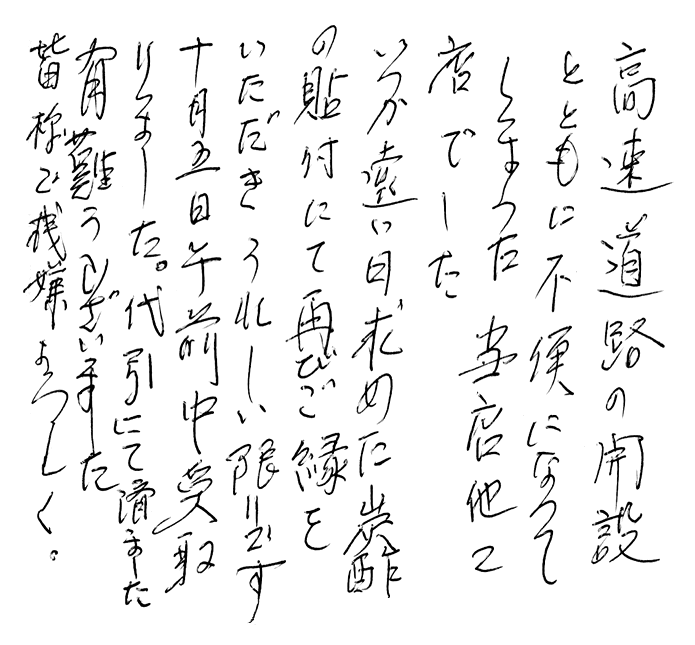 高速道路の開設
とともに不便になって
しまった 当店他
店でした
いつか遠い日求めた炭酢
の貼付にて再びご縁を
いただきうれしい限りです
十月五日午前中受取
りました。代引にて済ました
有難うございました
皆様ご機嫌よろしく。